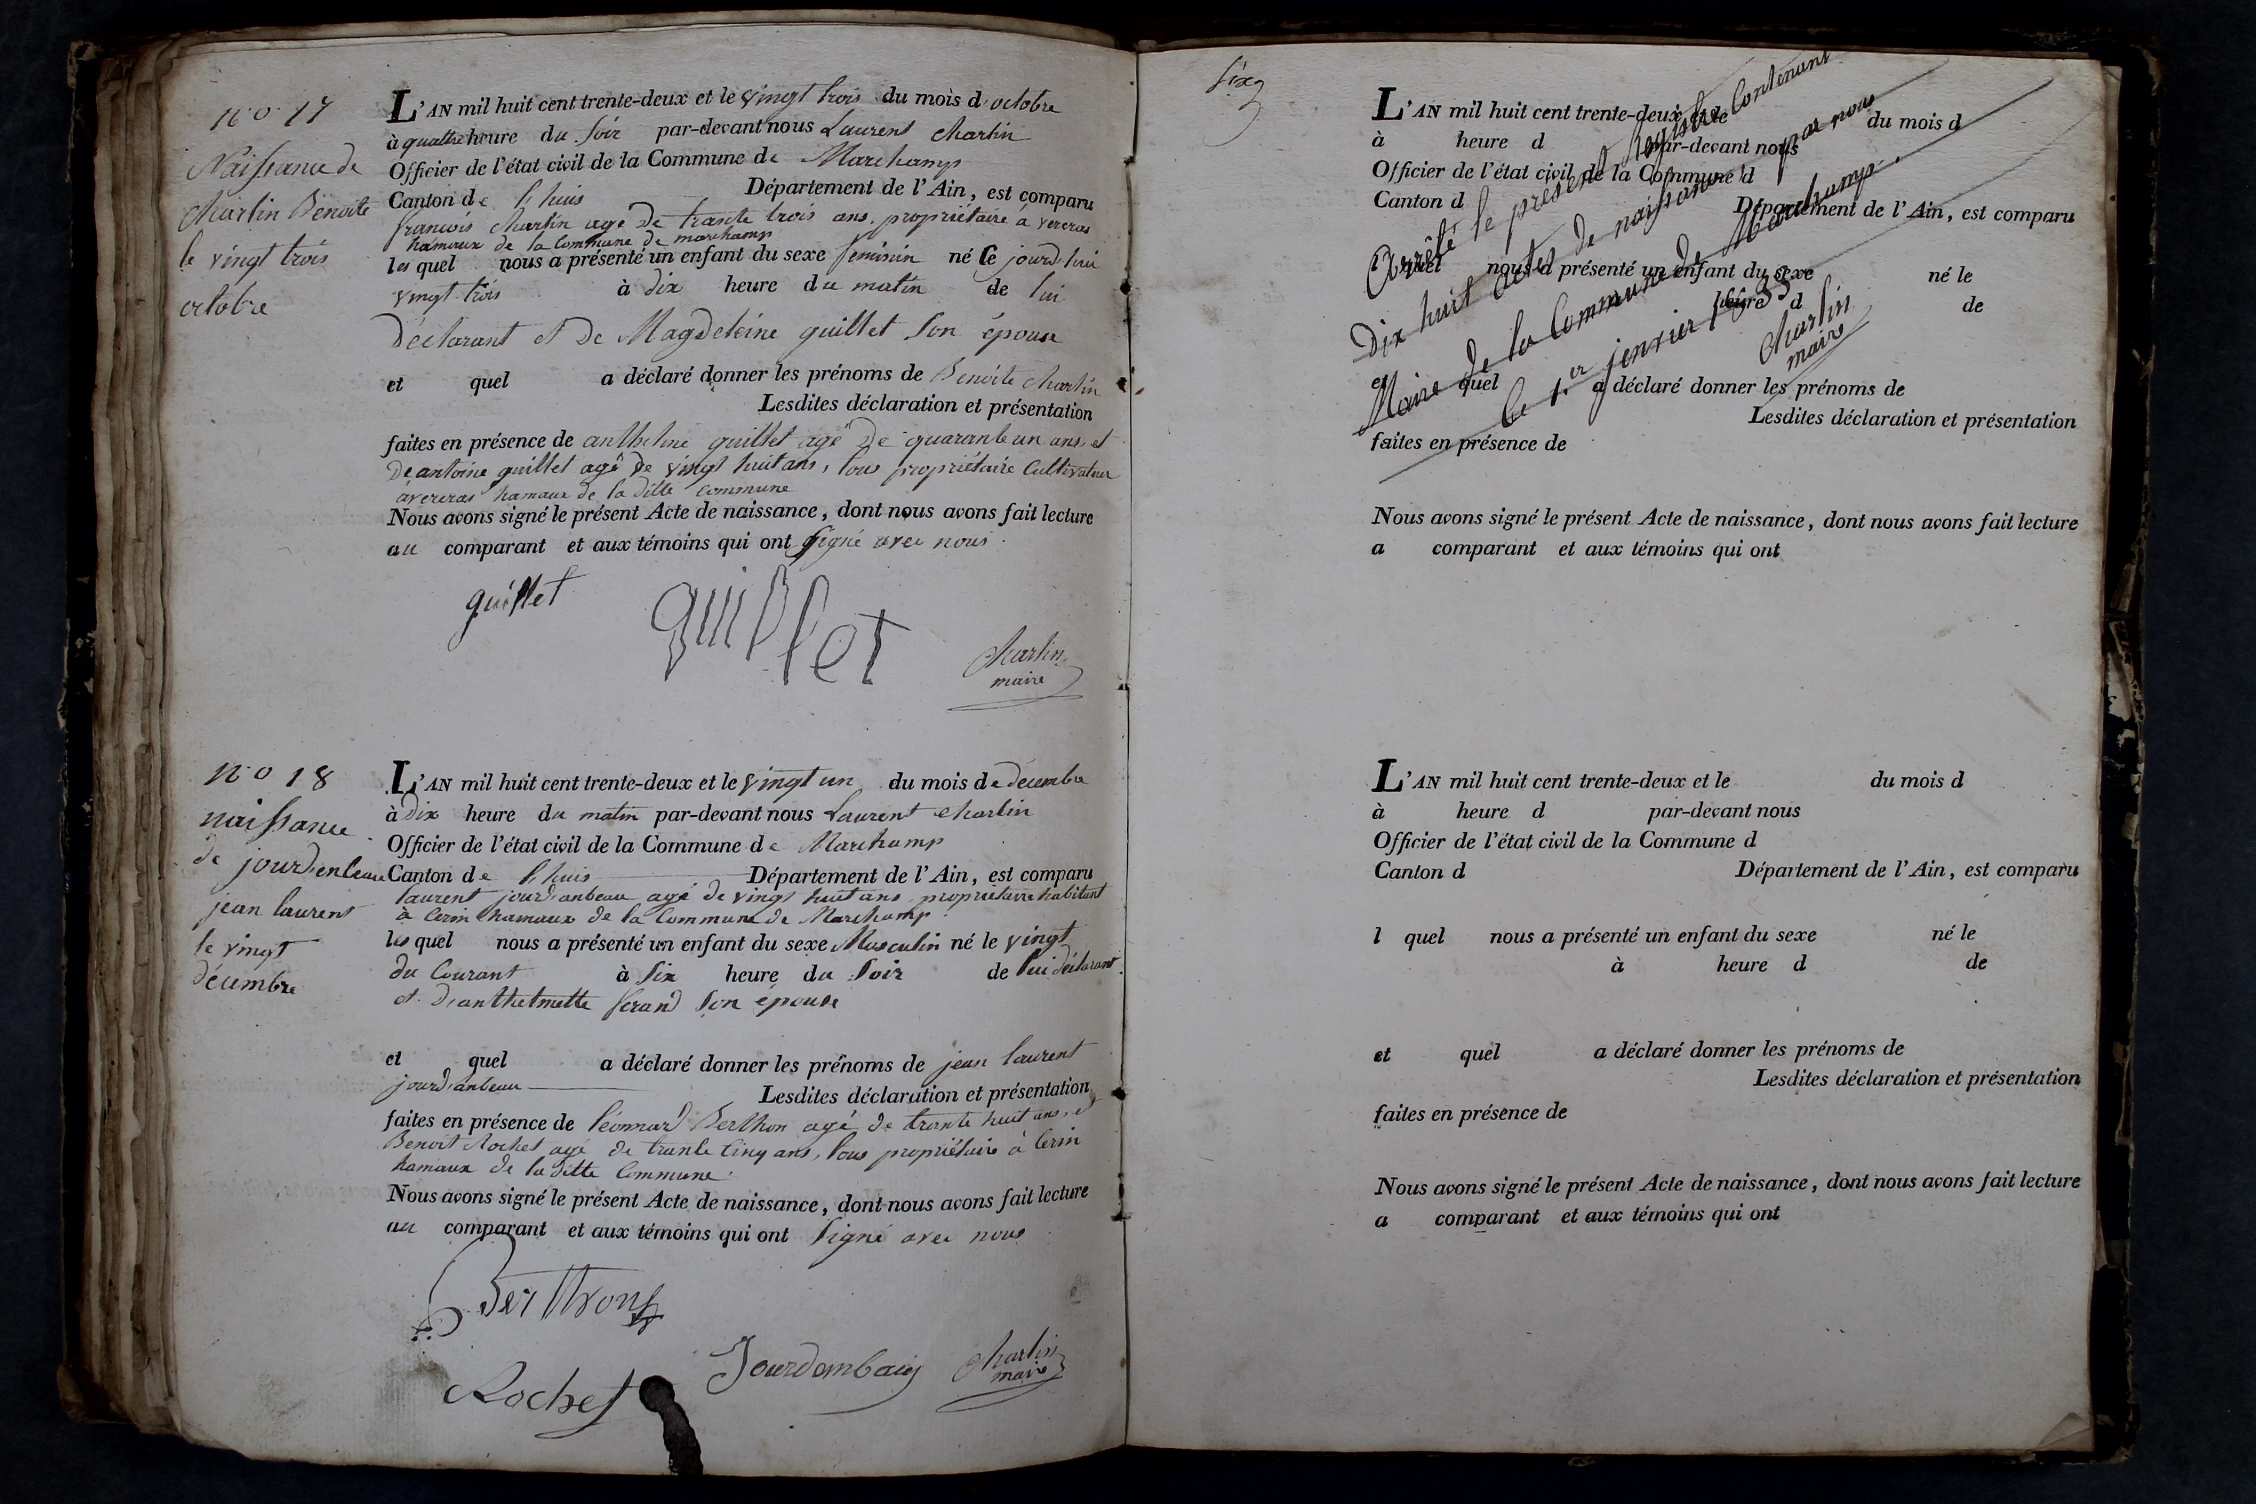 n.o 17
Naissance de
Charlin Benoite
le vingt trois
octobre
L'AN mil huit cent trente-deux et le vingt trois du mois d'octobre
à quattre heure du soir par-devant nous Laurent Charlin
Officier de l'état civil de la Commune de Marchamp
Canton de l'huis Département de l'Ain, est comparu
françois Charlin agé de trante trois ans, propriétaire à vereras
hamaux de la Commune de marchamp
lesquel nous a présenté un enfant du sexe feminin né le jourd'hui
vingt trois à dix heure du matin de lui
déclarant et de Magdeleine guillet son épouse
et quel a déclaré donner les prénoms de Benoite Charlin
Lesdites déclaration et présentation
faites en présence de anthelme guillet agé de quarante un ans et
de antoine guillet agé de vingt huit ans, tous propriétaire Cultivateur
à vereras hamaux de la ditte commune
Nous avons signé le présent Acte de naissance, dont nous avons fait lecture
au comparant et aux témoins qui ont signé avec nous.
guillet
guillet
Charlin
maire
n.o 18
naissance
de jourdenbeau
jean laurent
le vingt
décembre
L'AN mil huit cent trente-deux et le vingt un du mois de décembre
à dix heure du matin par-devant nous Laurent Charlin
Officier de l'état civil de la Commune de Marchamp
Canton de l'huis Département de l'Ain, est comparu
laurent jourdanbeau agé de vingt huit ans propriétaire habitant
à Cerin hamaux de la Commune de Marchamp
lesquel nous a présenté un enfant du sexe Masculin né le vingt
du Courant à six heure du soir de lui déclarant
et d'anthelmette ferand son épouse
et quel a déclaré donner les prénoms de jean laurent
jourdanbeau Lesdites déclaration et présentation
faites en présence de léonnard Berthon agé de trante huit ans, et
Benoit Rochet agé de trante cinq ans, tous propriétaire à Cerin
hamaux de la ditte Commune.
Nous avons signé le présent Acte de naissance, dont nous avons fait lecture
au comparant et aux témoins qui ont signé avec nous
Berthron
Rochet
Jourdombaiy
Charlin
maire
six
L'AN mil huit cent trente-deux et le du mois d
à heure d par-devant nous
Officier de l'état civil de la Commune d
Canton d Département de l'Ain, est comparu
l quel nous a présenté un enfant du sexe né le
à heure d de
et quel a déclaré donner les prénoms de
Lesdites déclaration et présentation
faites en présence de
Nous avons signé le présent Acte de naissance, dont nous avons fait lecture
a comparant et aux témoins qui ont
Arrêté le présent Registre Contenant
Dix huit actes de naissance par nous
Maire de la Commune de Marchamp.
Ce 1.er jenvier 1833
Charlin
maire
L'AN mil huit cent trente-deux et le du mois d
à heure d par-devant nous
Officier de l'état civil de la Commune d
Canton d Département de l'Ain, est comparu
l quel nous a présenté un enfant du sexe né le
à heure d de
et quel a déclaré donner les prénoms de
Lesdites déclaration et présentation
faites en présence de
Nous avons signé le présent Acte de naissance, dont nous avons fait lecture
a comparant et aux témoins qui ont